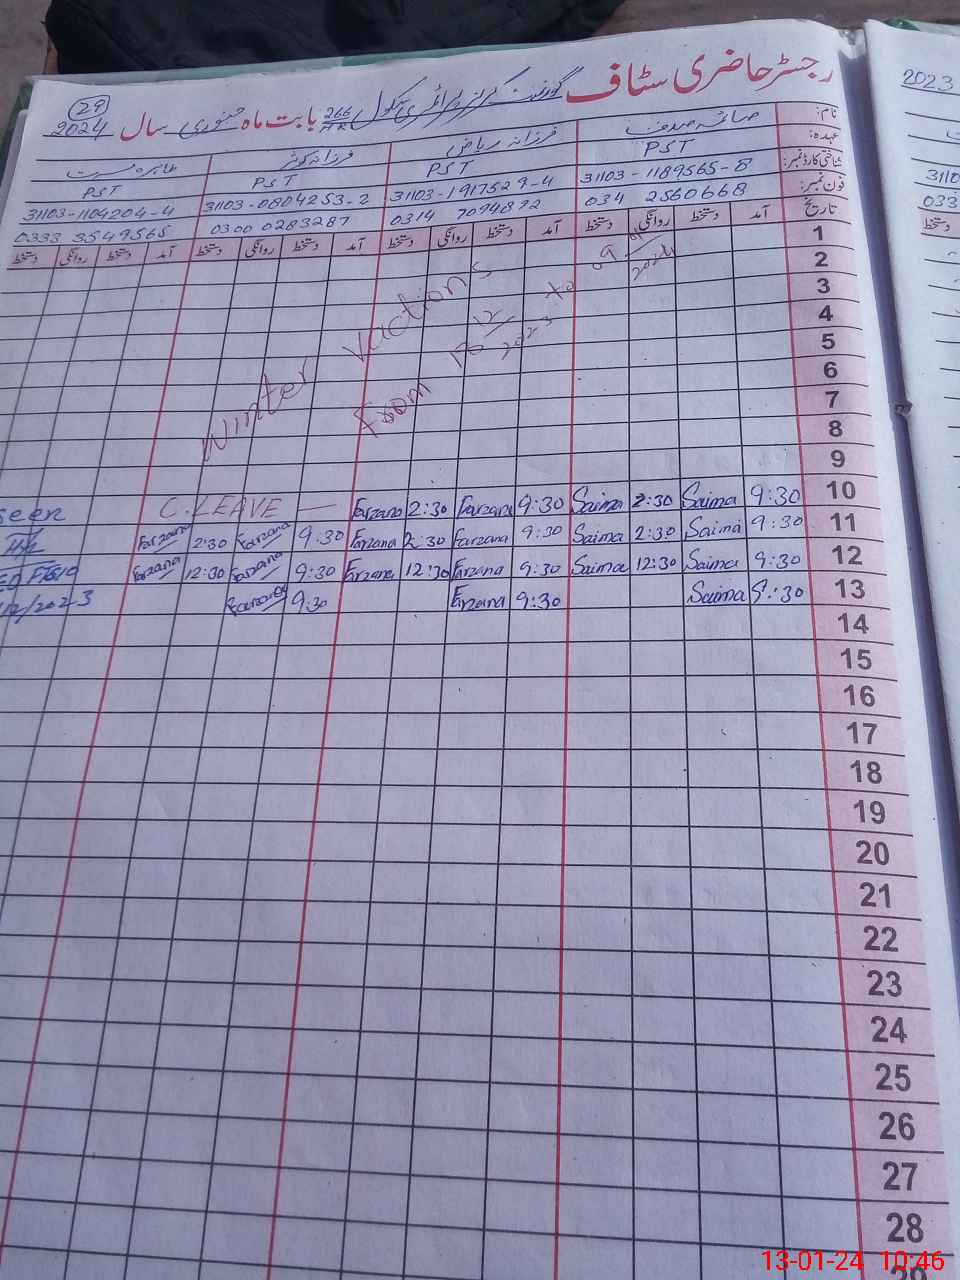 رجسٹر حاضری سٹاف گورنمنٹ گرلز پرائمری سکول 266/HR بابت ماہ جنوری سال 2024
29
2023
نام: صائمہ صدف فرزانہ ریاض فرزانہ کوثر طاہرہ مسرت
عہدہ: PST PST PST PST
شناختی کارڈ نمبر: 31103-1189565-8 31103-1917529-4 31103-0804253-2 31103-1104204-4
فون نمبر: 034 2560668 0314 7094872 0300 0283287 0333 3549565
تاریخ آمد دستخط روانگی دستخط آمد دستخط روانگی دستخط آمد دستخط روانگی دستخط آمد دستخط روانگی دستخط
1
2
3
4
5
6
7
8
9
Winter Vactions
From 12/2023 to 09/2024
10 9:30 Saima 2:30 Saima 9:30 Farzana 2:30 Farzana — C.LEAVE seen
11 9:30 Saima 2:30 Saima 9:30 Farzana 2:30 Farzana 9:30 Farzana 2:30 Farzana
12 9:30 Saima 12:30 Saima 9:30 Farzana 12:30 Farzana 9:30 Farzana 12:30 Farzana
13 9:30 Saima 9:30 Farzana 9:30 Farzana 12/2023
14
15
16
17
18
19
20
21
22
23
24
25
26
27
28
29
13-01-24 10:46